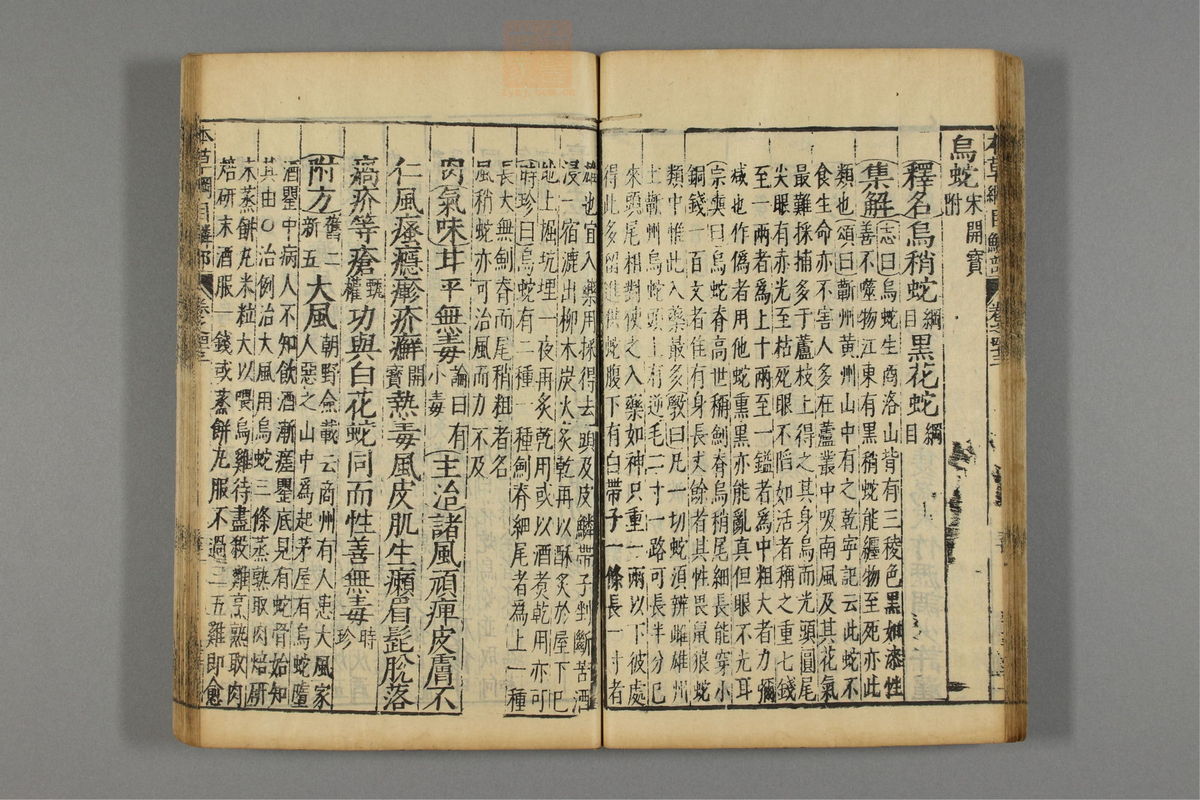 本草綱目鱗部
卷之四十三
烏蛇宋開寶附
釋名烏稍蛇綱目黑花蛇綱目
集解志曰烏蛇生商洛山背有三稜色黑如漆性
善不噬物江東有黑稍蛇能纏物至死亦此
類也頌曰蘄州黃州山中有之乾寧記云此蛇不
食生命亦不害人多在蘆叢中吸南風及其花氣
最難採捕多于蘆枝上得之其身烏而光頭圓尾
尖眼有赤光至枯死眼不陷如活者稱之重七錢
至一兩者為上十兩至一鎰者為中粗大者力彌
減也作偽者用他蛇熏黑亦能亂真但眼不光耳
宗奭曰烏蛇脊高世稱劍脊烏稍尾細長能穿小
銅錢一百文者佳有身長丈餘者其性畏鼠狼蛇
類中惟此入藥最多斅曰凡一切蛇須辨雌雄州
土蘄州烏蛇頭上有逆毛二寸一路可長半分已
來頭尾相對使之入藥如神只重一兩以下彼處
得此多留進供蛇腹下有白帶子一條長一寸者
雄也宜入藥用採得去頭及皮鱗帶子剉斷苦酒
浸一宿漉出柳木炭火炙乾再以酥炙於屋下巳
地上掘坑埋一夜再炙乾用或以酒煮乾用亦可
時珍曰烏蛇有二種一種劍脊細尾者為上一種
長大無劍脊而尾稍粗者名
風稍蛇亦可治風而力不及
肉氣味甘平無毒論曰有小毒主治諸風頑痺皮膚不
仁風瘙癮疹疥癬開寶熱毒風皮肌生癩眉髭脫落
㾏疥等瘡甄權功與白花蛇同而性善無毒時珍
附方舊二新五大風朝野僉載云商州有人患大風家
人惡之山中為起茅屋有烏蛇墮
酒罌中病人不知飲酒漸瘥罌底見有蛇骨始知
其由○治例治大風用烏蛇三條蒸熟取肉焙研
末蒸餅丸米粒大以喂烏雞待盡殺雞烹熟取肉
焙研末酒服一錢或蒸餅丸服不過三五雞即愈
本草綱目鱗部
卷之四十三